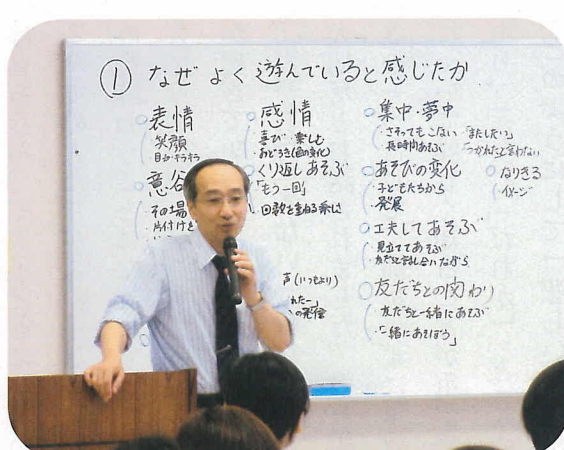 ① なぜよく遊んでいると感じたか
○表情
笑顔
目がキラキラ
意
その場
片付けを
○感情
喜び・楽しむ
おどろき(色の変化)
○くり返しあそぶ
「もう一回」
回数を重ねる楽しさ
声(いつもより)
の発信
○集中・夢中
・さそってもこない「またしたい」
長時間あそぶ「つかれたと言わない
○あそびの変化
・子どもたちから
発展
○なりきる
イメージ
○工夫してあそぶ
・見立ててあそぶ
・友だちと話し合いながら
○友だちとの関わり
友だちと一緒にあそぶ
・「一緒にあそぼう」